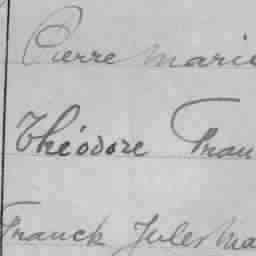 Pierre Marie
Théodore Fran
Franck Jules Ma